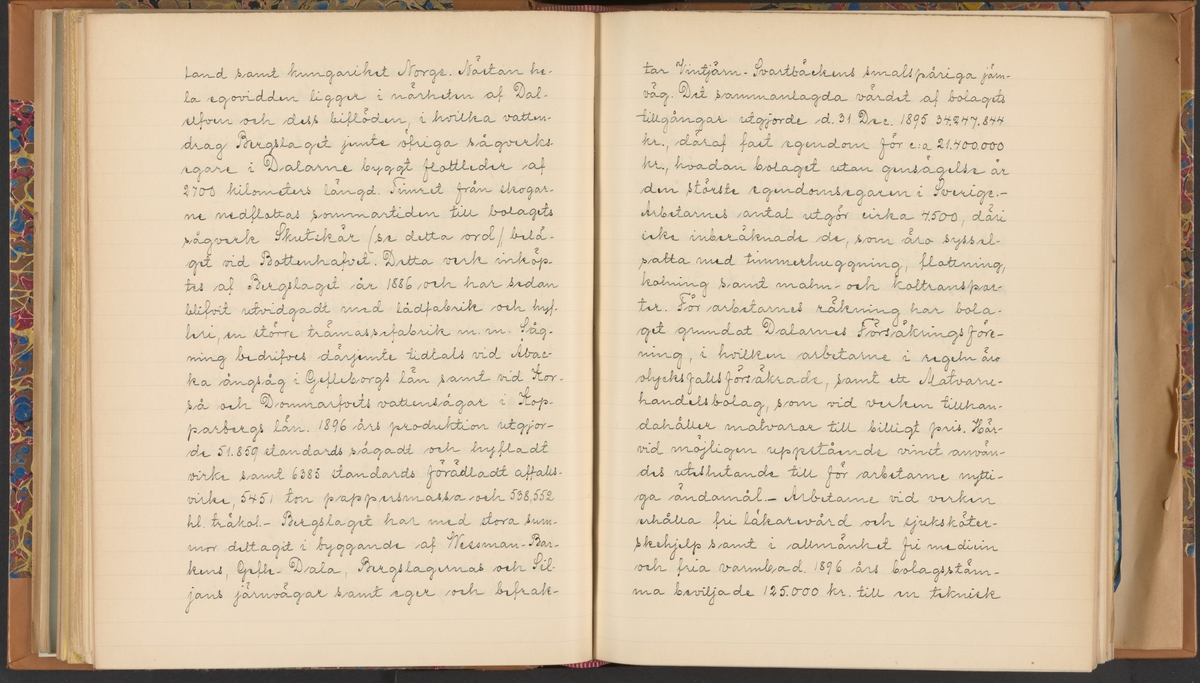 land samt kungariket Norge. Nästan he-
la egovidden ligger i närheten af Dal-
elfven och dess biflöden, i hvilka vatten-
drag Bergslaget jemte öfriga sågverks-
egare i Dalarne byggt flottleder af
2700 kilometers längd. Timret från skogar-
ne nedflottas sommartiden till bolagets
sågverk Skutskär (se detta ord) belä-
get vid Bottenhafvet. Detta verk inköp-
tes af Bergslaget år 1886 och har sedan
blifvit utvidgadt med lådfabrik och hyf-
leri, en större trämassefabrik m.m. Såg-
ning bedrifves därjemte tidtals vid Abac-
ka ångsåg i Gefleborgs län samt vid Kor-
så och Domnarfvets vattensågar i Kop-
parbergs län. 1896 års produktion utgjor-
de 51.859 standards sågadt och hyfladt
virke samt 6385 standards förädladt affalls-
virke, 5451 ton pappersmassa och 538,552
hl. träkol. – Bergslaget har med stora sum-
mor deltagit i byggande af Wessman-Bar-
kens, Gefle-Dala, Bergslagernas och Sil-
jans järnvägar samt eger och befrak-
tar Vintjärn-Svartbäckens smalspåriga järn-
väg. Det sammanlagda värdet af bolagets
tillgångar utgjorde d. 31 Dec. 1895 34.247.844
kr., däraf fast egendom för c:a 21.400.000
kr., hvadan bolaget utan gensägelse är
den störste egendomsegaren i Sverige. –
Arbetarnes antal utgör cirka 7.500, däri
icke inberäknade de, som äro syssel-
satta med timmerhuggning, flottning,
kolning samt malm- och koltranspor-
ter. För arbetarnes räkning har bola-
get grundat Dalarnes Försäkringsföre-
ning, i hvilken arbetarne i regeln äro
olycksfallsförsäkrade, samt ett Matvaru-
handelsbolag, som vid verken tillhan-
dahåller matvaror till billigt pris. Här-
vid möjligen uppstående vinst använ-
des uteslutande till för arbetarne nytti-
ga ändamål. – Arbetarne vid verken
erhålla fri läkarevård och sjuksköter-
skehjelp samt i allmänhet fri medicin
och fria varmbad. 1896 års bolagsstäm-
ma beviljade 125.000 kr. till en teknisk